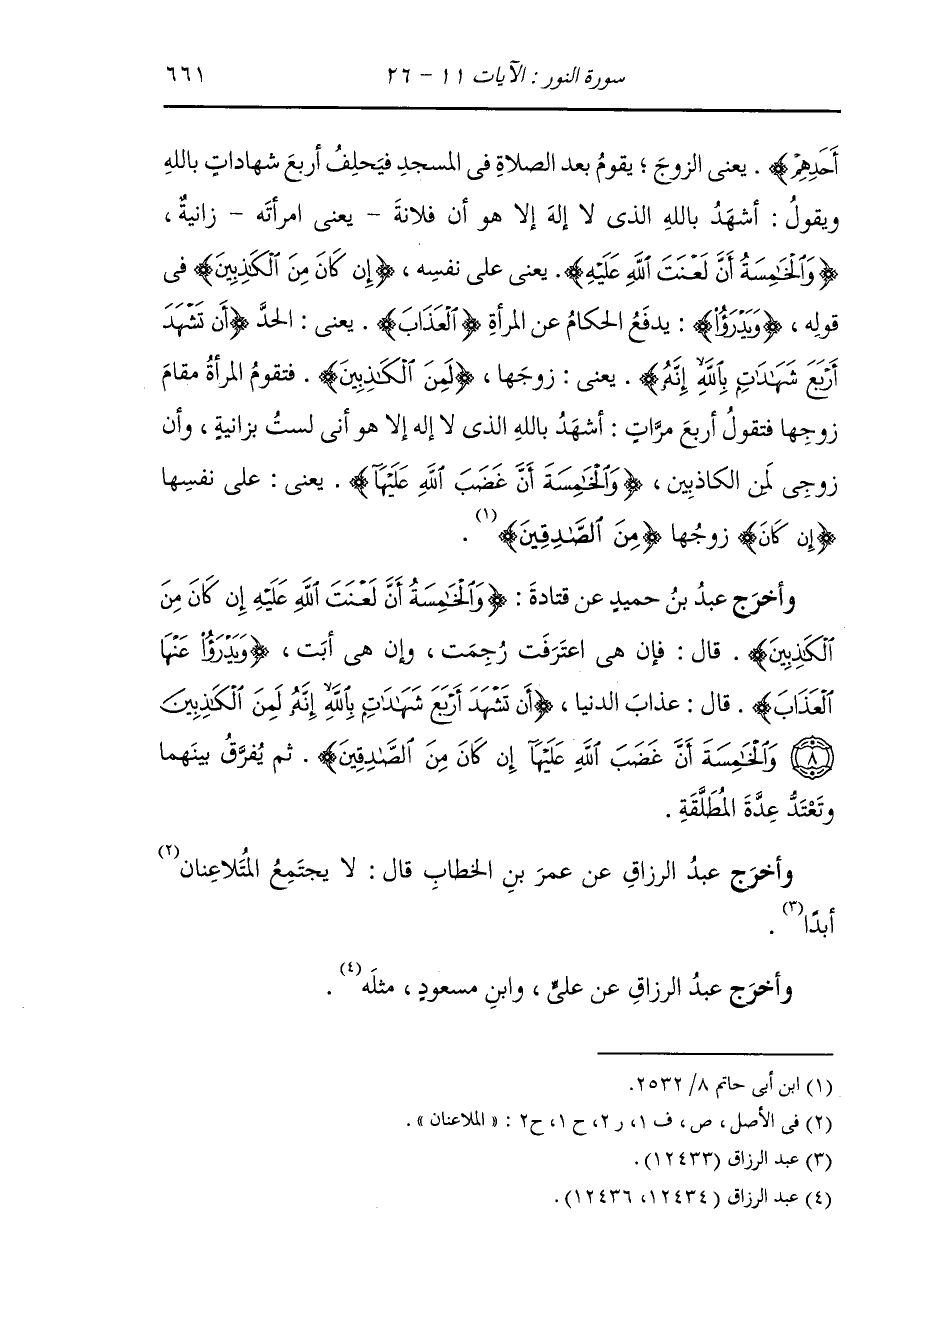 سورة النور : الآيات ١١ - ٢٦ ٦٦١
أَحَدِهِمْ﴾ . يعنى الزوجَ ؛ يقومُ بعد الصلاةِ فى المسجدِ فيَحلِفُ أربعَ شهاداتٍ باللهِ
ويقولُ : أشهَدُ باللهِ الذى لا إلهَ إلا هو أن فلانةَ - يعنى امرأتَه - زانيةٌ ،
﴿وَٱلْخَـٰمِسَةُ أَنَّ لَعْنَتَ ٱللَّهِ عَلَيْهِ﴾. يعنى على نفسِه ، ﴿إِن كَانَ مِنَ ٱلْكَـٰذِبِينَ﴾ فى
قولِه ، ﴿وَيَدْرَؤُا۟﴾ : يدفَعُ الحكامُ عن المرأةِ ﴿ٱلْعَذَابَ﴾ . يعنى : الحدَّ ﴿أَن تَشْهَدَ
أَرْبَعَ شَهَـٰدَٰتٍۭ بِٱللَّهِ ۙ إِنَّهُۥ﴾ . يعنى : زوجَها ، ﴿لَمِنَ ٱلْكَـٰذِبِينَ﴾ . فتقومُ المرأةُ مقامَ
زوجِها فتقولُ أربعَ مرَّاتٍ : أشهَدُ باللهِ الذى لا إله إلا هو أنى لستُ بزانيةٍ ، وأن
زوجِى لَمِن الكاذبِين ، ﴿وَٱلْخَـٰمِسَةَ أَنَّ غَضَبَ ٱللَّهِ عَلَيْهَآ﴾ . يعنى : على نفسِها
﴿إِن كَانَ﴾ زوجُها ﴿مِنَ ٱلصَّـٰدِقِينَ﴾(١) .
وأخرَج عبدُ بنُ حميدٍ عن قتادةَ : ﴿وَٱلْخَـٰمِسَةُ أَنَّ لَعْنَتَ ٱللَّهِ عَلَيْهِ إِن كَانَ مِنَ
ٱلْكَـٰذِبِينَ﴾ . قال : فإن هى اعتَرفَت رُجِمَت ، وإن هى أبَت ، ﴿وَيَدْرَؤُا۟ عَنْهَا
ٱلْعَذَابَ﴾ . قال : عذابَ الدنيا ، ﴿أَن تَشْهَدَ أَرْبَعَ شَهَـٰدَٰتٍۭ بِٱللَّهِ ۙ إِنَّهُۥ لَمِنَ ٱلْكَـٰذِبِينَ
(٨) وَٱلْخَـٰمِسَةَ أَنَّ غَضَبَ ٱللَّهِ عَلَيْهَآ إِن كَانَ مِنَ ٱلصَّـٰدِقِينَ﴾ . ثم يُفرَّقُ بينَهما
وتَعْتَدُّ عِدَّةَ المُطَلَّقَةِ .
وأخرَج عبدُ الرزاقِ عن عمرَ بنِ الخطابِ قال : لا يجتَمِعُ المُتَلاعِنان(٢)
أبدًا(٣) .
وأخرَج عبدُ الرزاقِ عن علىٍّ ، وابنِ مسعودٍ ، مثلَه(٤) .
(١) ابن أبى حاتم ٨/ ٢٥٣٢.
(٢) فى الأصل ، ص ، ف ١، ر ٢، ح ١، ح٢ : « الملاعنان » .
(٣) عبد الرزاق (١٢٤٣٣) .
(٤) عبد الرزاق (١٢٤٣٤، ١٢٤٣٦) .